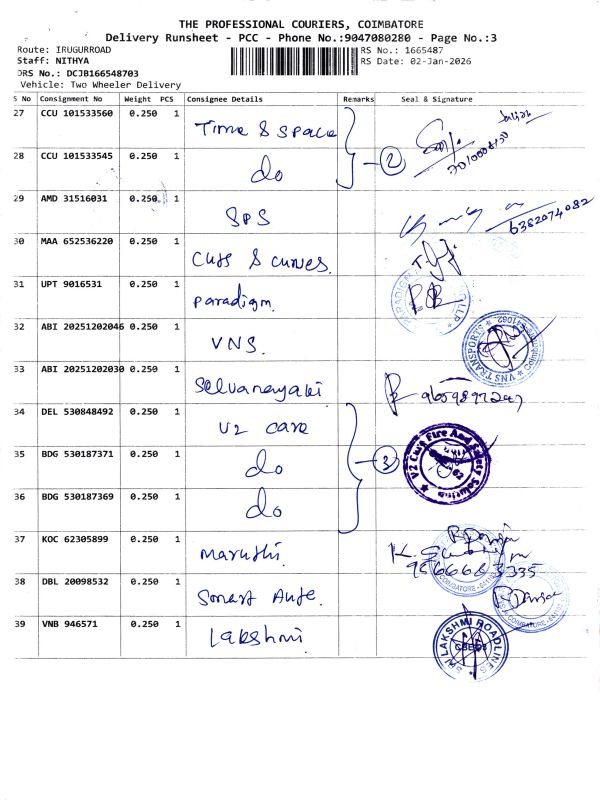 THE PROFESSIONAL COURIERS, COIMBATORE
Delivery Runsheet - PCC - Phone No.:9047080280 - Page No.:3
Route: IRUGURROAD
RS No.: 1665487
Staff: NITHYA
RS Date: 02-Jan-2026
DRS No.: DCJB166548703
Vehicle: Two Wheeler Delivery
S No Consignment No Weight PCS Consignee Details Remarks Seal & Signature
27 CCU 101533560 0.250 1 Time & Space
28 CCU 101533545 0.250 1 do 2 7010008130
29 AMD 31516031 0.250 1 SPS 6382074082
30 MAA 652536220 0.250 1 Cuts & curves
31 UPT 9016531 0.250 1 Paradigm
32 ABI 20251202046 0.250 1 VNS. VNS TRANSPORTS
33 ABI 20251202030 0.250 1 Selvanayaki
34 DEL 530848492 0.250 1 V2 care
35 BDG 530187371 0.250 1 do 3 V2 Care Fire And Safety Solution
36 BDG 530187369 0.250 1 do
37 KOC 62305899 0.250 1 Maruthi COIMBATORE
38 DBL 20098532 0.250 1 Auto. COIMBATORE
39 VNB 946571 0.250 1 Lakshmi SRI LAKSHMI ROADLINES